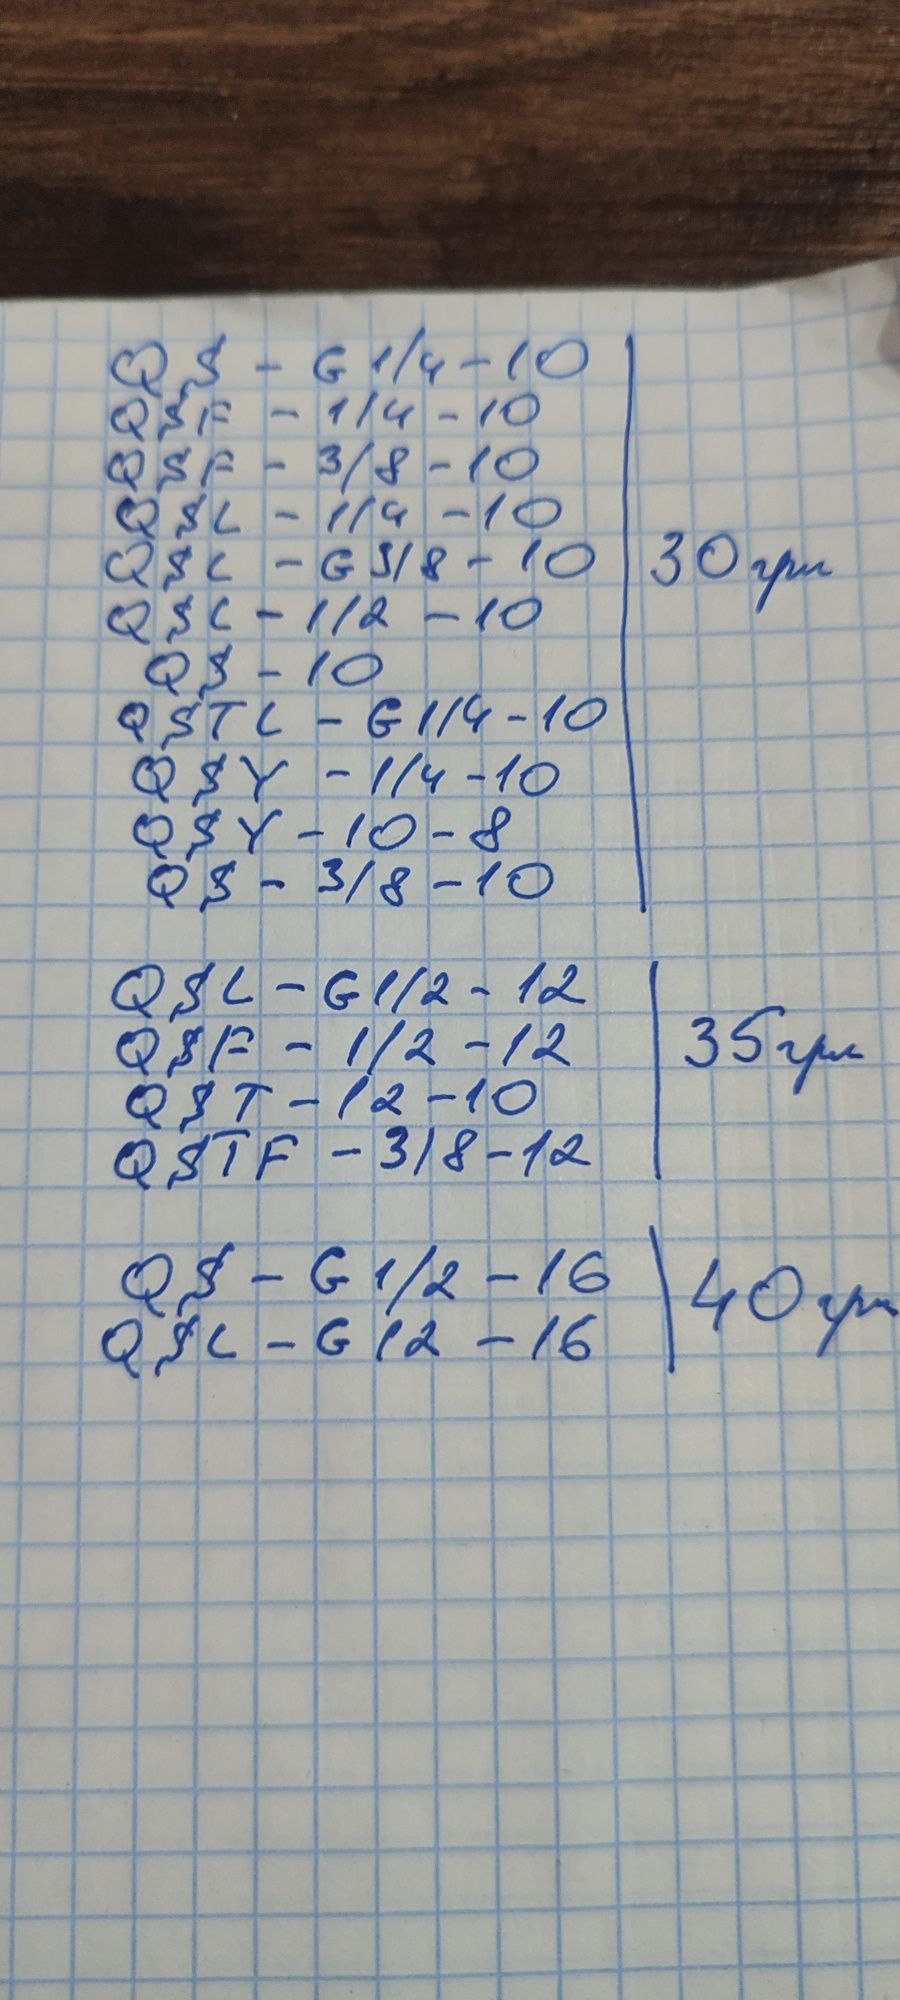 QS - G1/4 - 10
QSF - 1/4 - 10
QSF - 3/8 - 10
QSL - 1/4 - 10
QSL - G3/8 - 10
30 грн
QSL - 1/2 - 10
QS - 10
QSTL - G1/4 - 10
QSY - 1/4 - 10
QSY - 10 - 8
QS - 3/8 - 10
QSL - G1/2 - 12
QSF - 1/2 - 12
35 грн
QST - 12 - 10
QSTF - 3/8 - 12
QS - G1/2 - 16
40 грн
QSL - G12 - 16